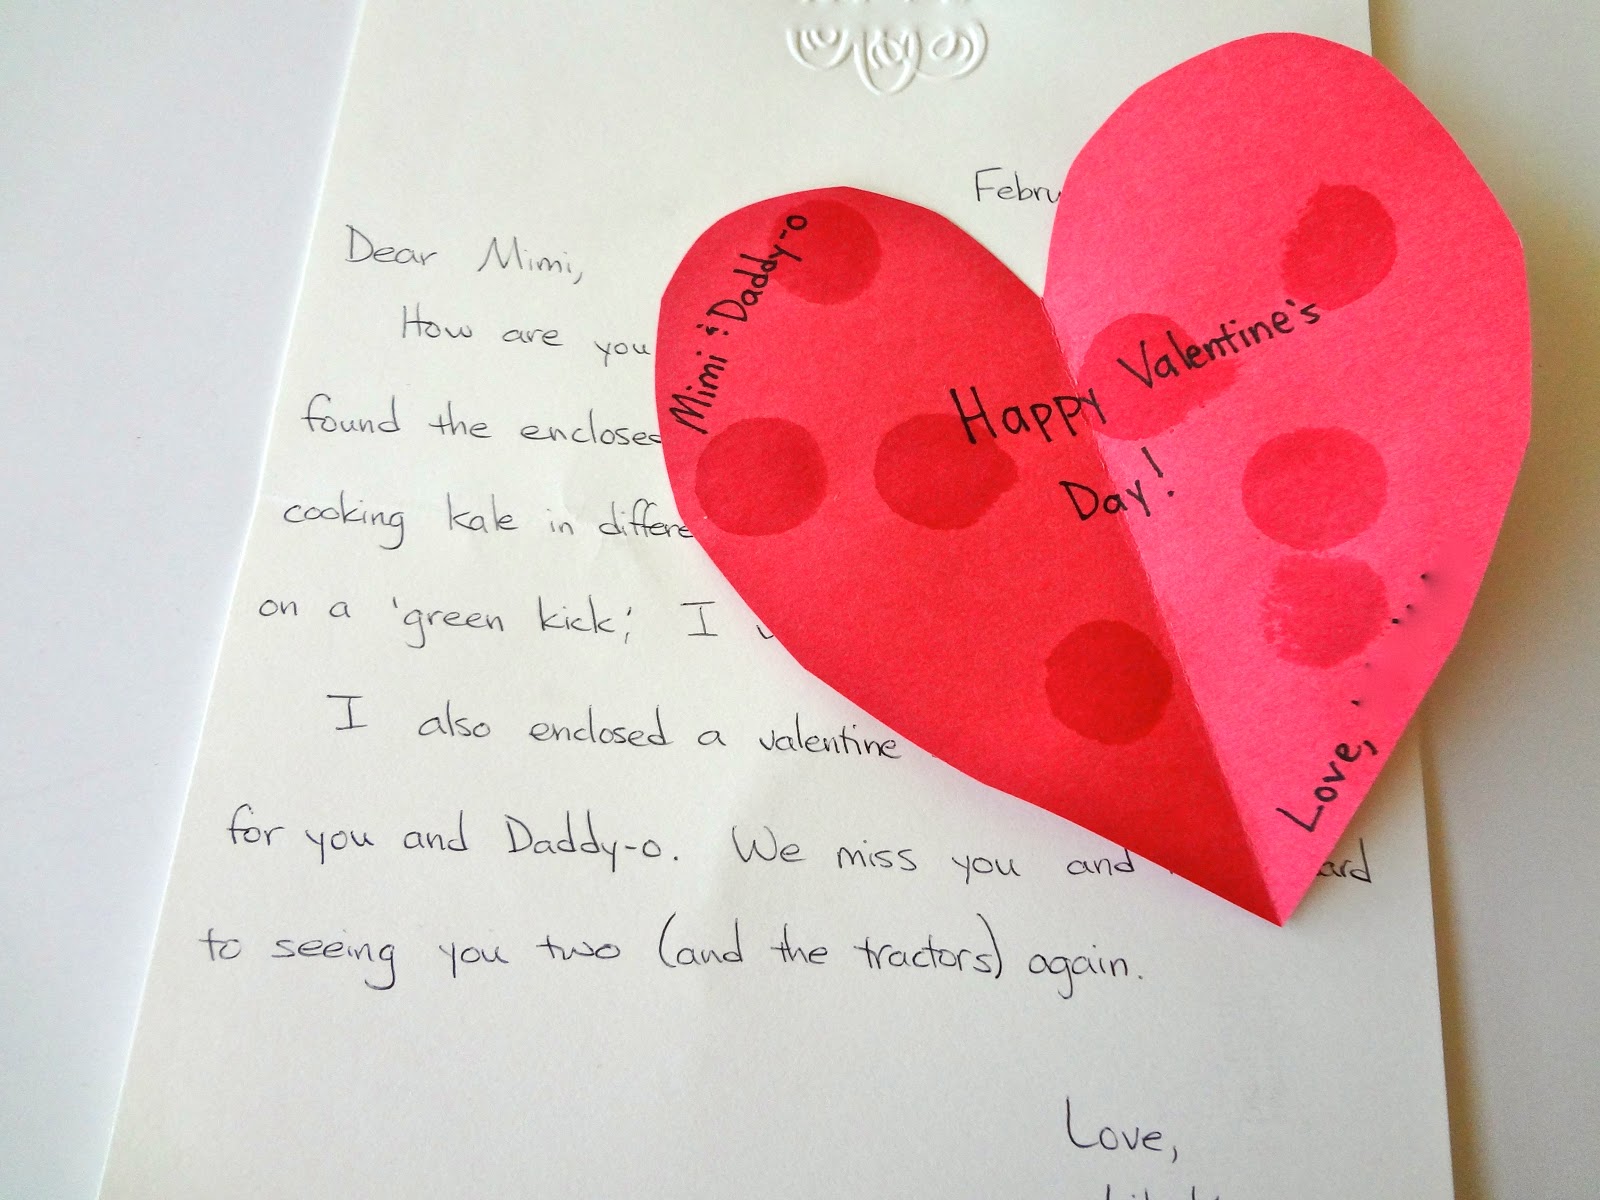 Febru
Dear Mimi,
How are you
found the enclosed
cooking kale in differe
on a 'green kick,' I
I also enclosed a valentine
for you and Daddy-o. We miss you and
to seeing you two (and the tractors) again.
Love,
Mimi & Daddy-o
Happy Valentine's
Day!
Love,